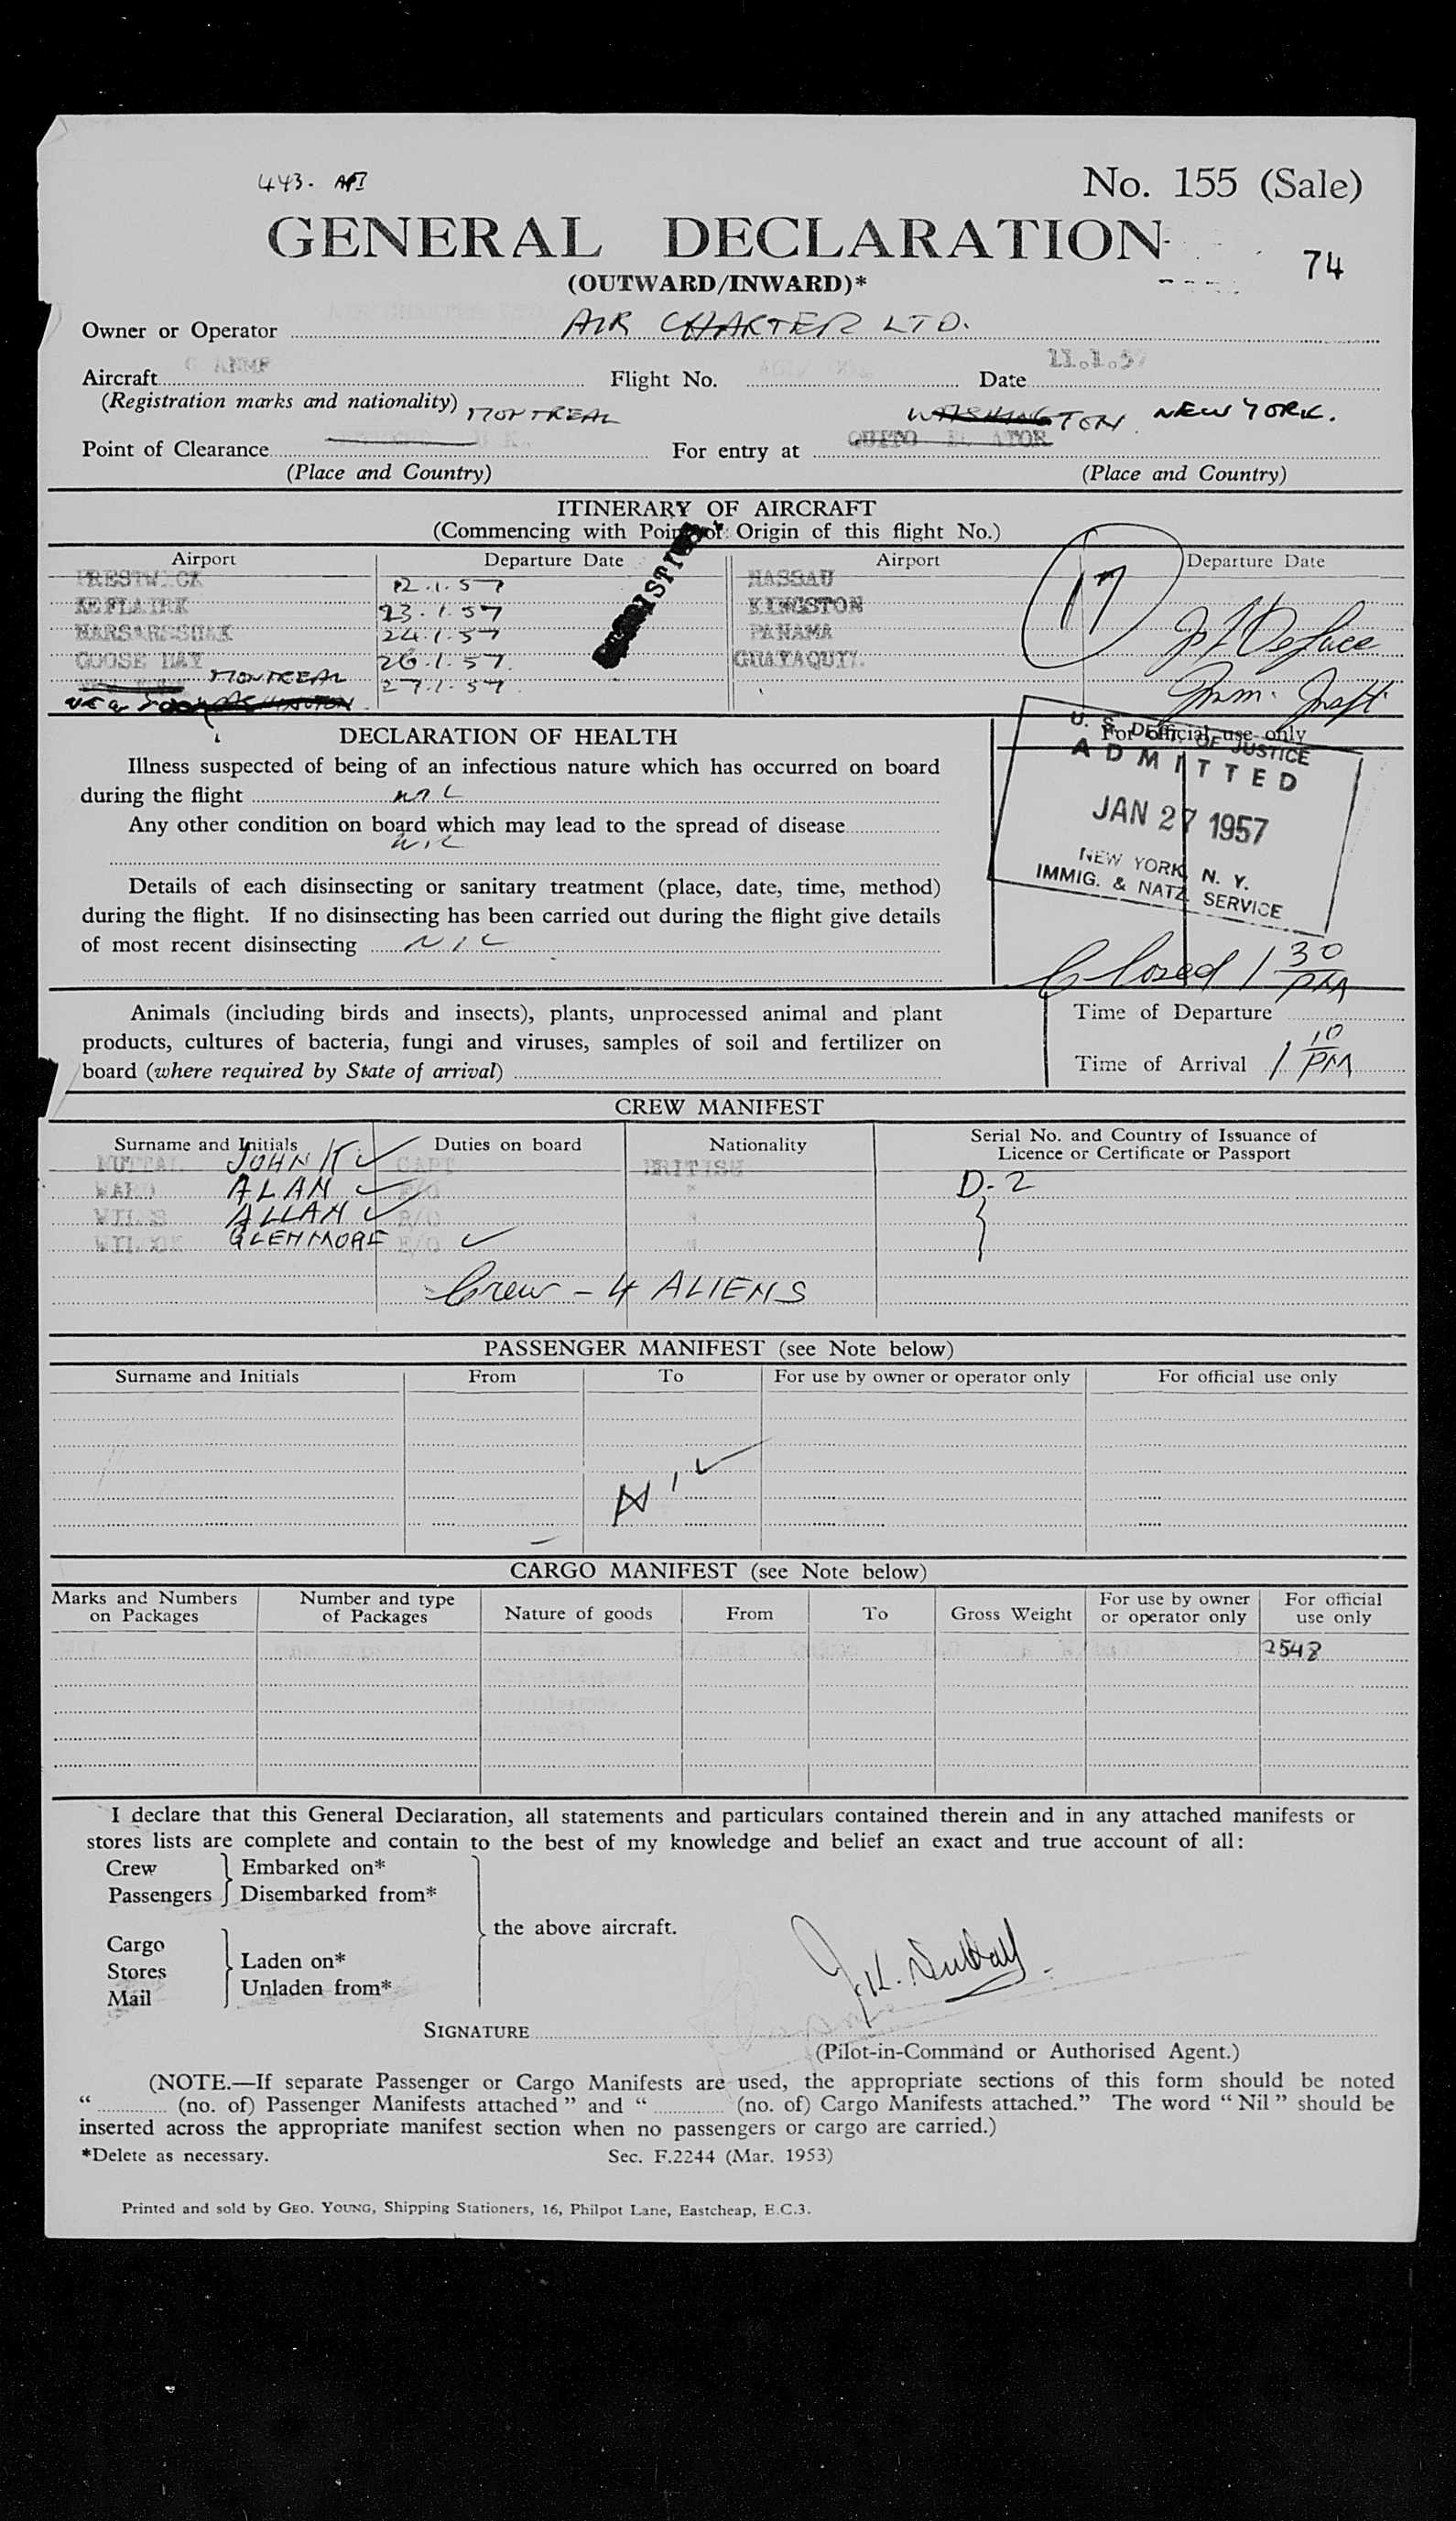 443.
No. 155 (Sale)
GENERAL DECLARATION
74
(OUTWARD/INWARD)*
Owner or Operator AIR CHARTER LTD.
11.1.57
Aircraft Flight No. Date
(Registration marks and nationality) MONTREAL WASHINGTON NEW YORK.
Point of Clearance For entry at QUITO
(Place and Country) (Place and Country)
ITINERARY OF AIRCRAFT
(Commencing with Point of Origin of this flight No.)
Airport Departure Date Airport Departure Date
PRESTWICK 12.1.57 NASSAU
KEFLAVIK 23.1.57 KINGSTON 17
NARSARSSUAK 24.1.57 PANAMA
GOOSE BAY 26.1.57. GUAYAQUIL
MONTREAL 27.1.57.
WASHINGTON.
DECLARATION OF HEALTH For official use only
Illness suspected of being of an infectious nature which has occurred on board
during the flight NIL
Any other condition on board which may lead to the spread of disease
NIL
Details of each disinsecting or sanitary treatment (place, date, time, method)
during the flight. If no disinsecting has been carried out during the flight give details
of most recent disinsecting NIL
U. S. DEPT. OF JUSTICE
ADMITTED
JAN 27 1957
NEW YORK, N. Y.
IMMIG. & NATZ. SERVICE
Closed 1 30 PM
Animals (including birds and insects), plants, unprocessed animal and plant
products, cultures of bacteria, fungi and viruses, samples of soil and fertilizer on
board (where required by State of arrival)
Time of Departure
Time of Arrival 1 10 PM
CREW MANIFEST
Surname and Initials Duties on board Nationality Serial No. and Country of Issuance of
Licence or Certificate or Passport
JOHN K CAPT BRITISH
WARD ALAN F/O " D-2
ALLAN R/O "
WILCOX GLENMORE E/O "
Crew - 4 ALIENS
PASSENGER MANIFEST (see Note below)
Surname and Initials From To For use by owner or operator only For official use only
NIL
CARGO MANIFEST (see Note below)
Marks and Numbers on Packages Number and type of Packages Nature of goods From To Gross Weight For use by owner or operator only For official use only
2548
I declare that this General Declaration, all statements and particulars contained therein and in any attached manifests or
stores lists are complete and contain to the best of my knowledge and belief an exact and true account of all:
Crew Embarked on*
Passengers Disembarked from*
the above aircraft.
Cargo
Stores Laden on*
Mail Unladen from*
SIGNATURE
(Pilot-in-Command or Authorised Agent.)
(NOTE.—If separate Passenger or Cargo Manifests are used, the appropriate sections of this form should be noted
“ ............ (no. of) Passenger Manifests attached ” and “ ............ (no. of) Cargo Manifests attached.” The word “ Nil ” should be
inserted across the appropriate manifest section when no passengers or cargo are carried.)
*Delete as necessary. Sec. F.2244 (Mar. 1953)
Printed and sold by GEO. YOUNG, Shipping Stationers, 16, Philpot Lane, Eastcheap, E.C.3.